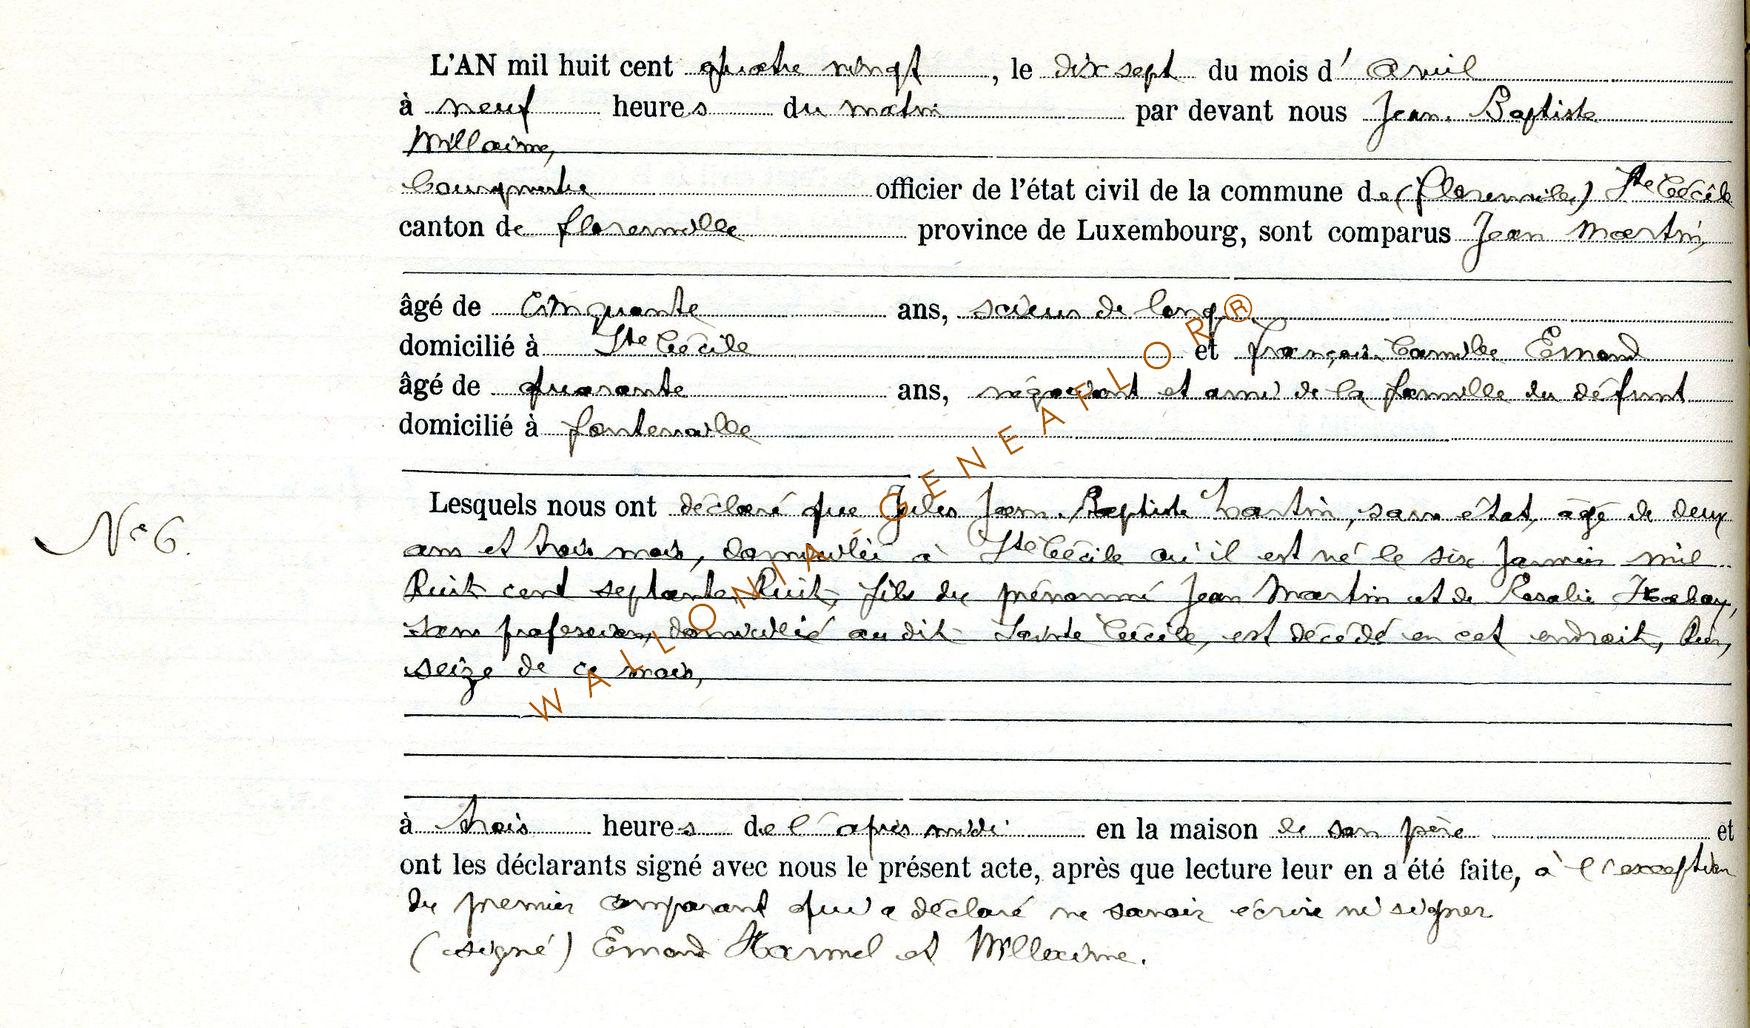 L'AN mil huit cent quatre vingt, le dix sept du mois d' avril
à neuf heures du matin par devant nous Jean-Baptiste
Willaime,
bourgmestre officier de l'état civil de la commune de (florenville) Ste Cécile
canton de florenville province de Luxembourg, sont comparus Jean Martin,
âgé de Cinquante ans, scieur de long
domicilié à Ste Cécile et françois Camille Emond
âgé de quarante ans, négociant et ami de la famille du défunt
domicilié à fontenoille
N° 6.
Lesquels nous ont déclaré que Jules Jean-Baptiste Martin, sans état, âgé de deux
ans et trois mois, domicilié à Ste Cécile où il est né le six Janvier mil
huit cent septante huit, fils du prénommé Jean Martin et de Rosalie Habay,
sans profession, domicilié au dit Sainte Cécile, est décédé en cet endroit, hier,
seize de ce mois,
à trois heures de l'après midi en la maison de son père et
ont les déclarants signé avec nous le présent acte, après que lecture leur en a été faite, à l'exception
du premier comparant qui a déclaré ne savoir écrire ni signer
(signé) Emond Harmel et Willaime.
WALLONIA GENEAFLOR®